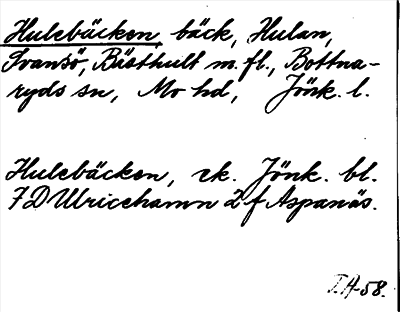 Hulebäcken, bäck, Hulan,
Svansö, Bästhult m. fl., Bottna-
ryds sn, Mo hd, Jönk. l.
Hulebäcken, ek. Jönk. bl.
7 D Ulricehamn 2 f Aspanäs.
T.H-58.